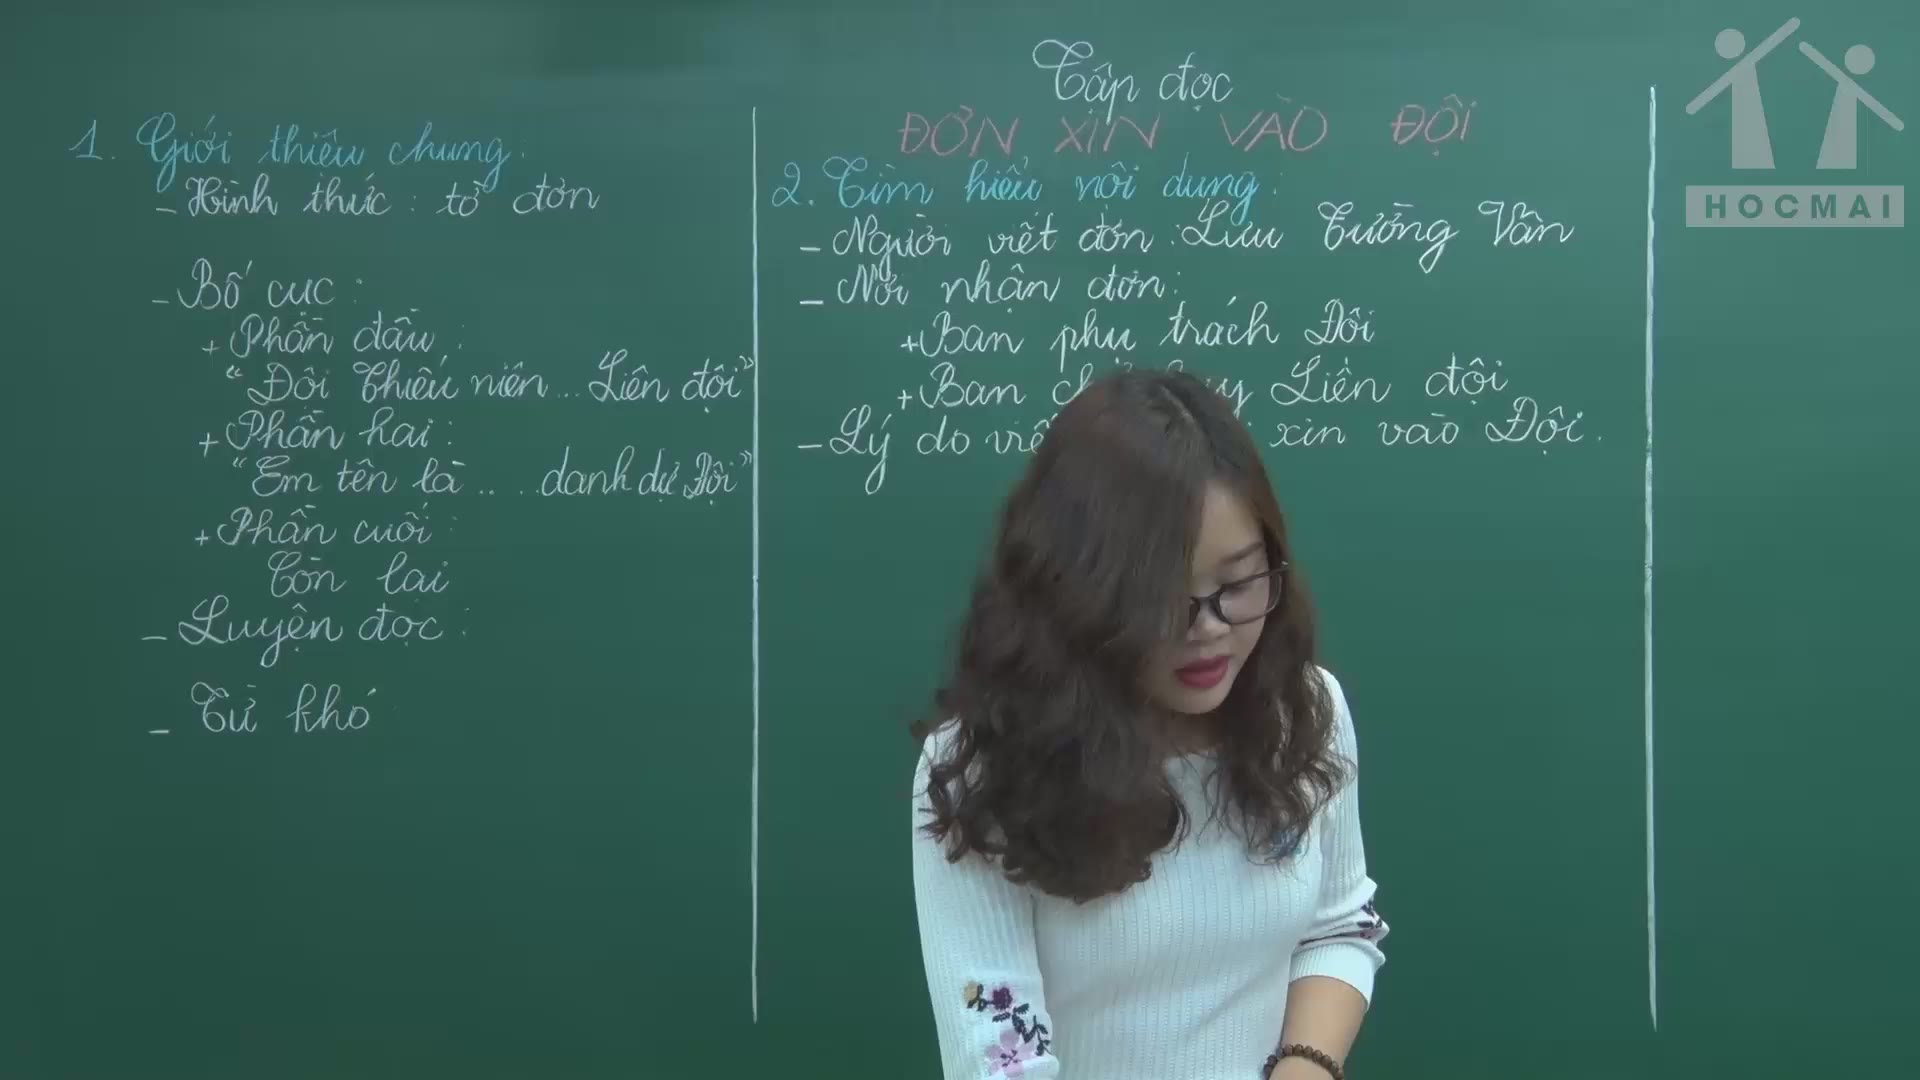 Tập đọc
ĐƠN XIN VÀO ĐỘI
1. Giới thiệu chung:
- Hình thức: tờ đơn
- Bố cục:
+ Phần đầu:
"Đội Thiếu niên... Liên đội"
+ Phần hai:
"Em tên là .. ... danh dự Đội"
+ Phần cuối:
Còn lại
- Luyện đọc:
- Từ khó
2. Tìm hiểu nội dung:
- Người viết đơn: Lưu Tường Vân
- Nơi nhận đơn:
+ Ban phụ trách Đội
+ Ban Liên đội
- Lý do xin vào Đội.
HOCMAI